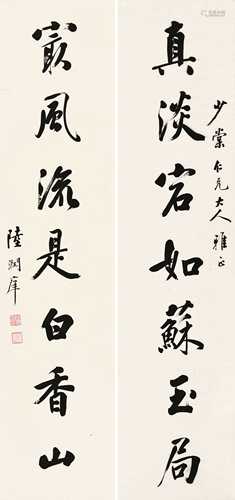 少棠仁兄大人雅正
真淡宕如蘇玉局
㝡風流是白香山
陸潤庠